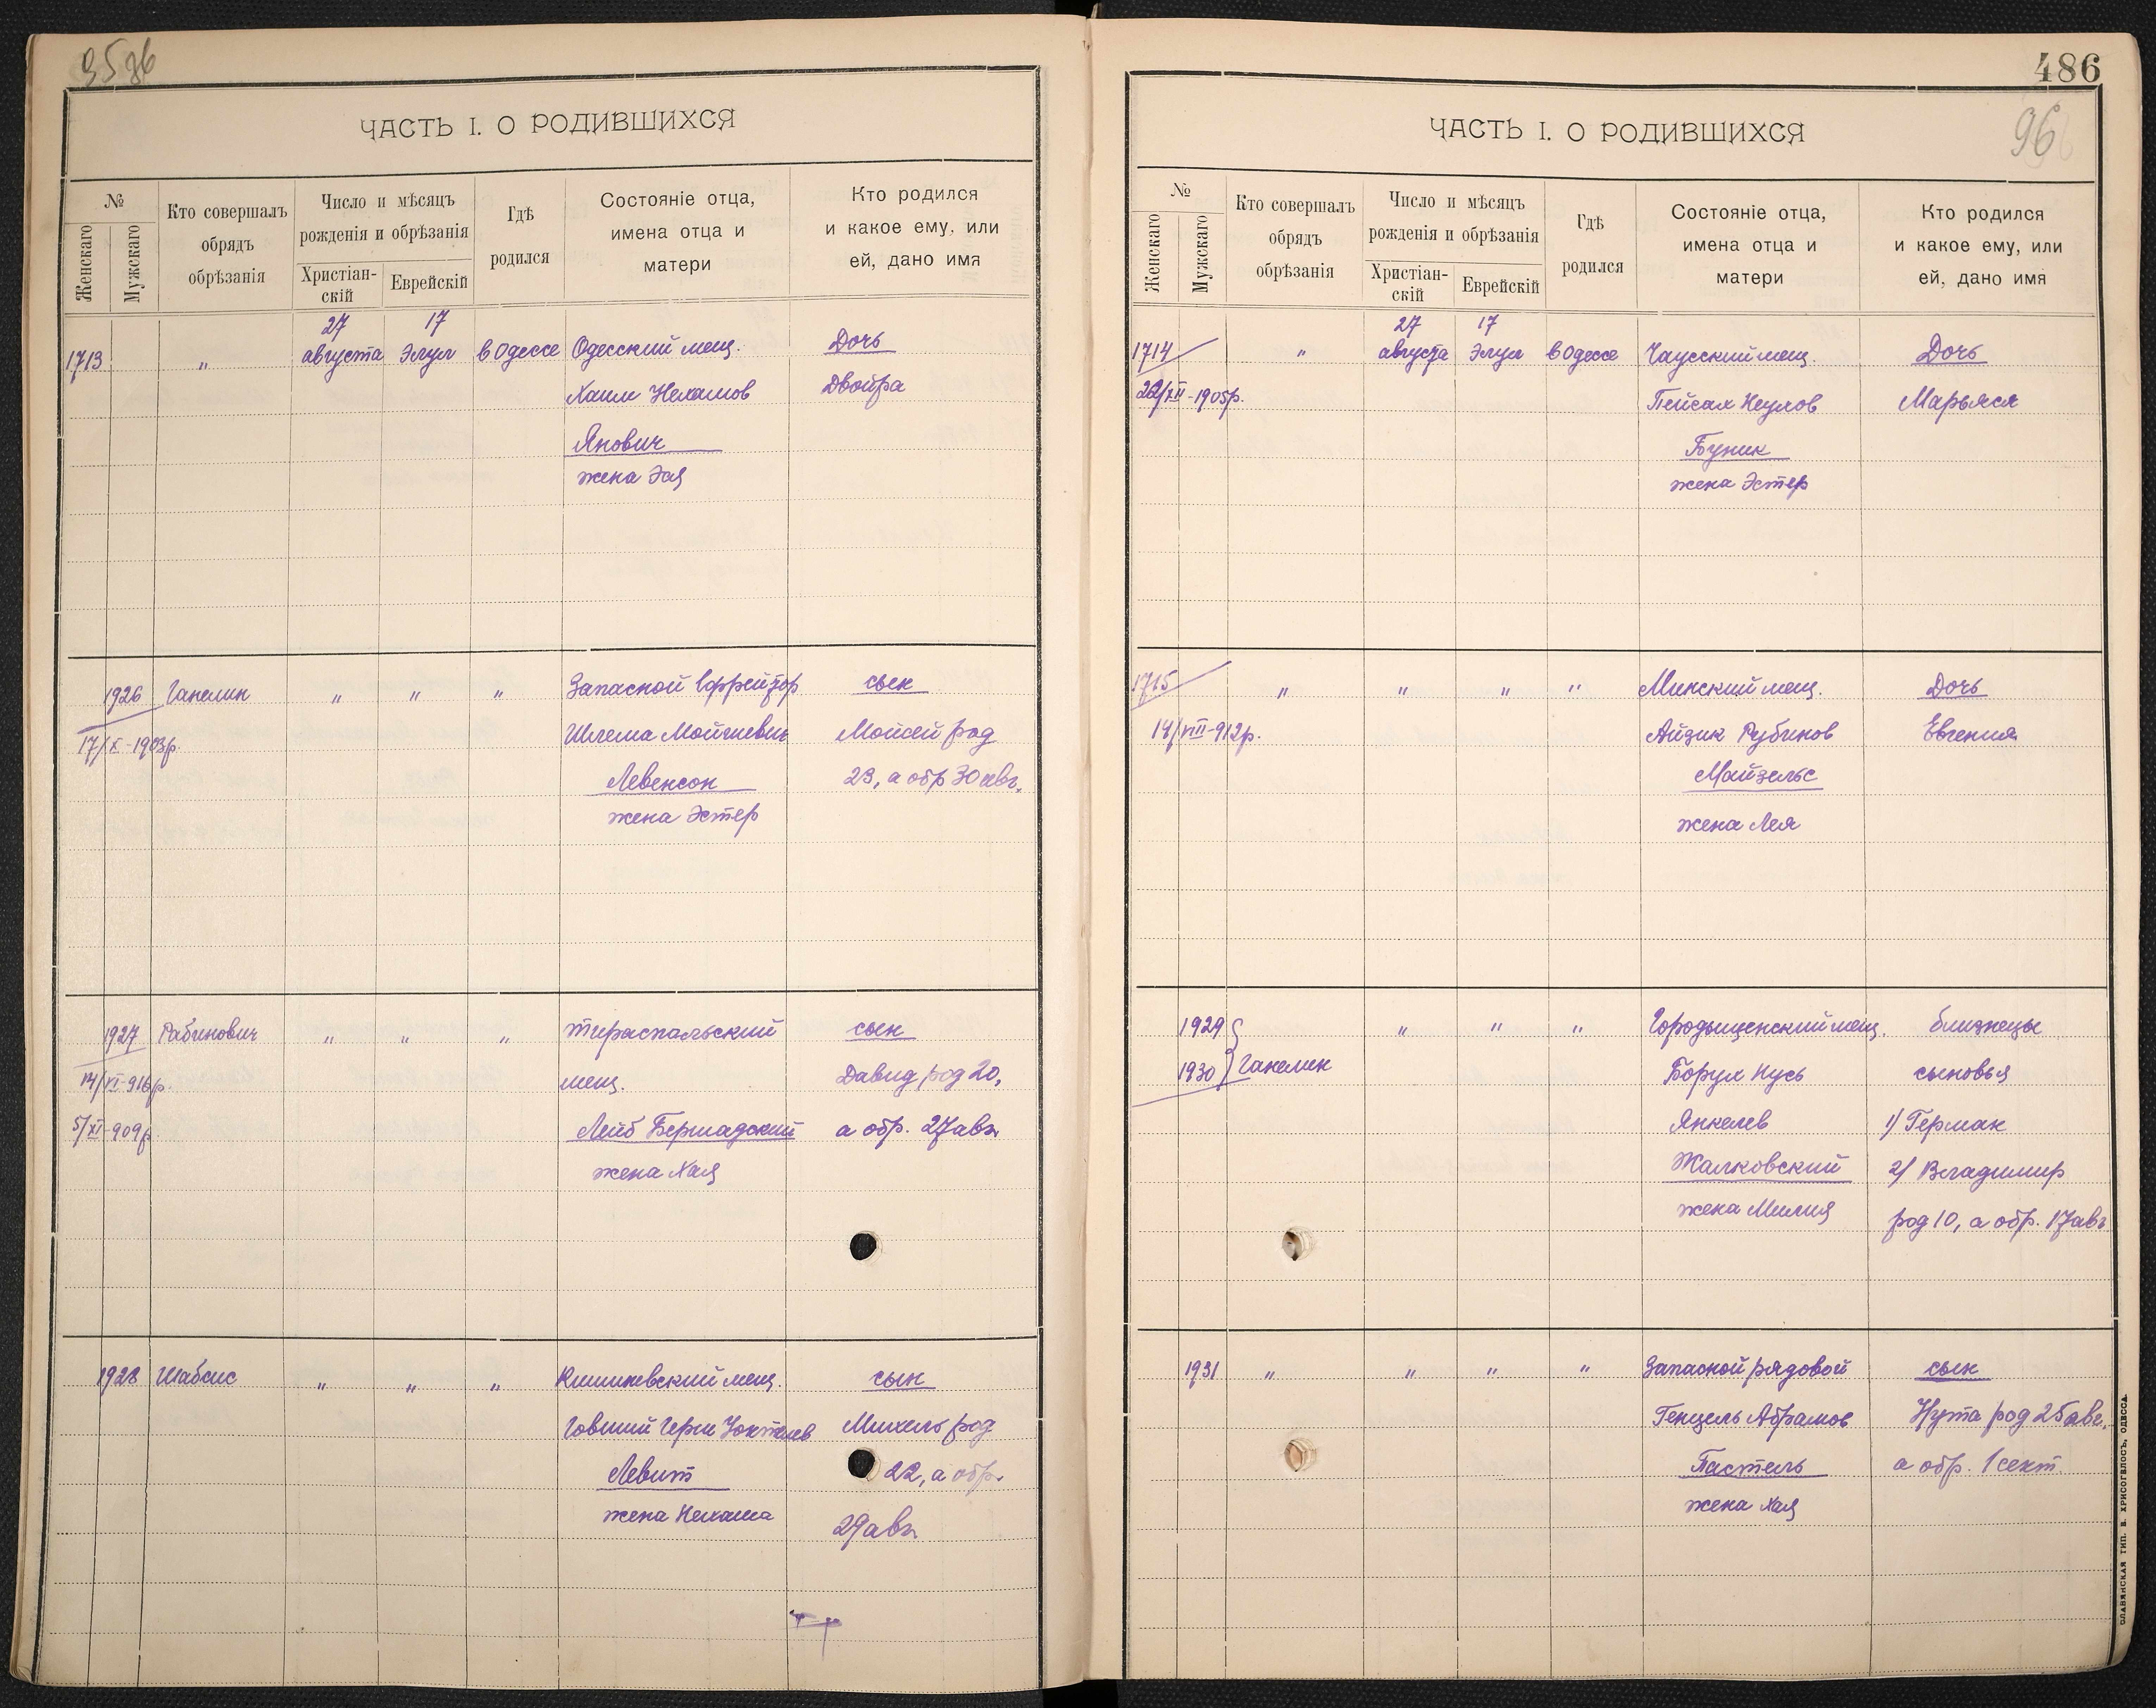 ЧАСТЬ I. О РОДИВШИХСЯ
№
Женскаго
Мужскаго
Кто совершалъ
обрядъ
обрѣзанія
Число и мѣсяцъ
рожденія и обрѣзанія
Христіан-
скій
Еврейскій
Гдѣ
родился
Состояніе отца,
имена отца и
матери
Кто родился
и какое ему, или
ей, дано имя
27 17
1713 " августа Элул в Одессе Одесский мещ. Дочь
Хаим Нехамов Двойра
Янович
жена Эся
1926 Ганелин " " " Запасной ефрейтор сын
17/X-1903р. Шлема Мойшевич Мойсей род
Левенсон 23, а обр 30 авг.
жена Эстер
1927 Рабинович " " " тираспальский сын
14/VI-916р. мещ. Давид род 20,
5/XI-909р. Лейб Бершадский а обр. 27 авг.
жена Хая
1928 Шабсис " " " Кишиневский мещ. сын
Говший Герш Михель род
Левит 22, а обр.
жена Нехама 29 авг.
486
96
ЧАСТЬ I. О РОДИВШИХСЯ
№
Женскаго
Мужскаго
Кто совершалъ
обрядъ
обрѣзанія
Число и мѣсяцъ
рожденія и обрѣзанія
Христіан-
скій
Еврейскій
Гдѣ
родился
Состояніе отца,
имена отца и
матери
Кто родился
и какое ему, или
ей, дано имя
27 17
1714 " августа Элул в Одессе Чаусский мещ. Дочь
XII-1905р. Пейсах Неухов Марьяся
Буник
жена Эстер
1715 " " " " Минский мещ. Дочь
14/VIII-912р. Айзик Рубинов Евгения
Майзельс
жена Лея
1929 " " " Городыщенский мещ. близнецы
1930 Ганелин Борух Нусь сыновья
Янкелев 1/ Герман
Жалковский 2/ Владимир
жена Милия род 10, а обр. 17 авг
1931 " " " " Запасной рядовой сын
Генцель Абрамов Нута род 25 авг.
Пастель а обр. 1 сент.
жена Хая
СЛАВЯНСКАЯ ТИП. В. ХРИСОГЕЛОСЪ, ОДЕССА.